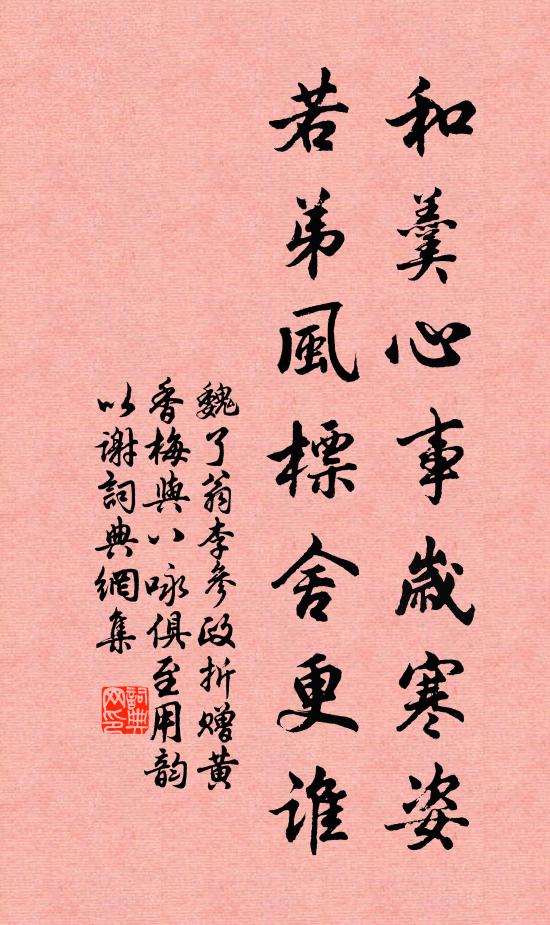 和羹心事歲寒姿
若弟風標舍更誰
魏了翁李參政折赠黄
香梅與八咏俱至用韵
以谢詞典網集
詞典网印